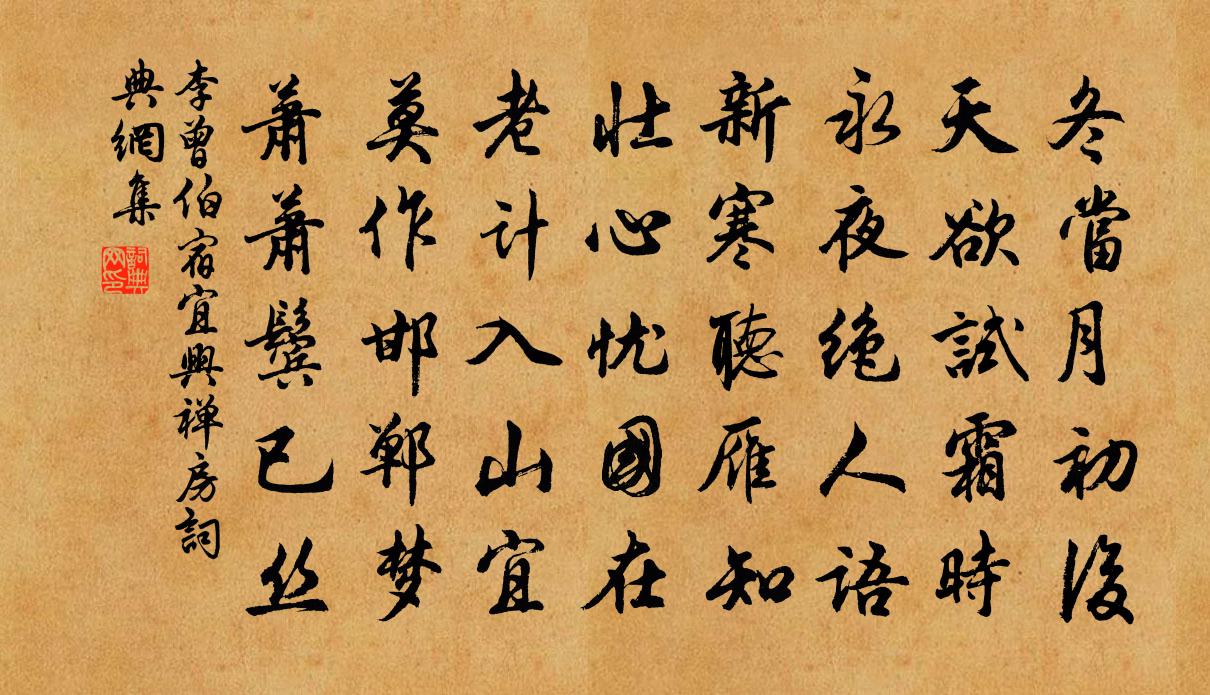 冬當月初後
天欲試霜時
永夜絶人語
新寒聽雁知
壮心忧國在
老计入山宜
莫作邯郸梦
蕭蕭鬓已丝
李曾伯宿宜興禅房詞
典網集
詞典
网印